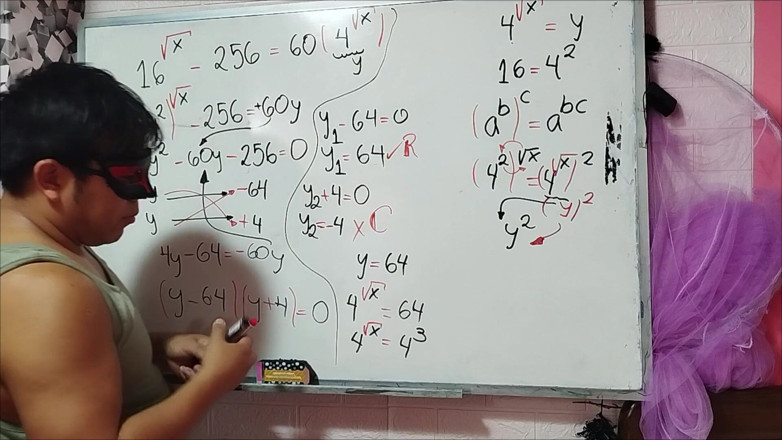 16^√x - 256 = 60(4^√x)
y
²)^√x - 256 = +60y
y² - 60y - 256 = 0
y -64
y +4
4y - 64 = -60y
(y - 64)(y + 4) = 0
y₁ - 64 = 0
y₁ = 64 ✓ R
y₂ + 4 = 0
y₂ = -4 × C
y = 64
4^√x = 64
4^√x = 4³
4^√x = y
16 = 4²
(a^b)^c = a^bc
(4²)^√x = (4^√x)²
(y)²
y²